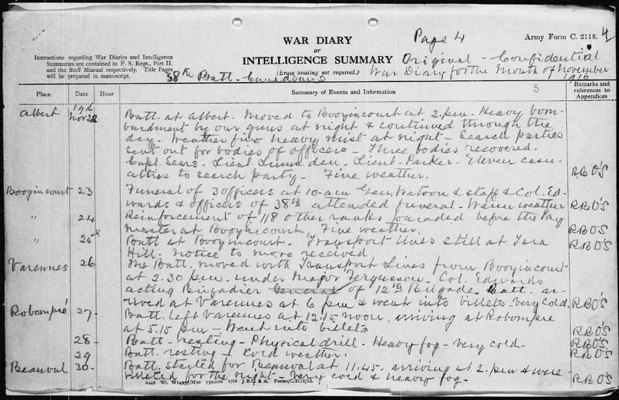 Page 4
Army Form C. 2118.
WAR DIARY
or
INTELLIGENCE SUMMARY
(Erase heading not required.)
Instructions regarding War Diaries and Intelligence
Summaries are contained in F. S. Regs., Part II.
and the Staff Manual respectively. Title Pages
will be prepared in manuscript.
Original - Confidential
War Diary for the Month of November
38th Batt. Canadians
Place
Date
Hour
Summary of Events and Information
Remarks and
references to
Appendices
Albert
1916
Nov 22
Batt. at Albert. Moved to Bouzincourt at 2. p.m. Heavy bom-
bardment by our guns at night & continued through the
day. Weather fine heavy mist at night - Search parties
sent out for bodies of officers - Three bodies recovered.
Capt. Sears. Lieut. Lumsden. Lieut. Parker. Eleven casu-
alties to search party - Fine weather.
R.B.O'S
Bouzincourt 23
Funeral of 3 officers at 10-am Gen. Watson & staff & Col. Ed-
wards & officers of 38th attended funeral - Warm weather
R.B.O'S
" 24
Reinforcement of 118 other ranks paraded before the Pay
master at Bouzincourt, Fine weather.
R.B.O'S
" 25
Batt at Bouzincourt. Transport lines still at Tara
Hill. notice to move received
R.B.O'S
Varennes 26
The Batt. moved with Transport Lines from Bouzincourt
at 2.30 p.m. under Major Fergusson. Col. Edwards
acting Brigadier General of 12th Brigade. Batt. ar-
rived at Varennes at 6 p.m & went into billets Very cold.
R.B.O'S
Robompré 27-
Batt. left Varennes at 12.15 noon, arriving at Robompré
at 5.15 p.m - Went into billets
R.B.O'S
28-
Batt- resting - Physical drill - Heavy fog - very cold-
R.B.O'S
29
Batt. resting - Cold weather.
R.B.O'S
Beauval 30-
Batt. started for Beauval at 11.45. arriving at 2. p.m & were
billeted for the night - Very cold & heavy fog -
R.B.O'S